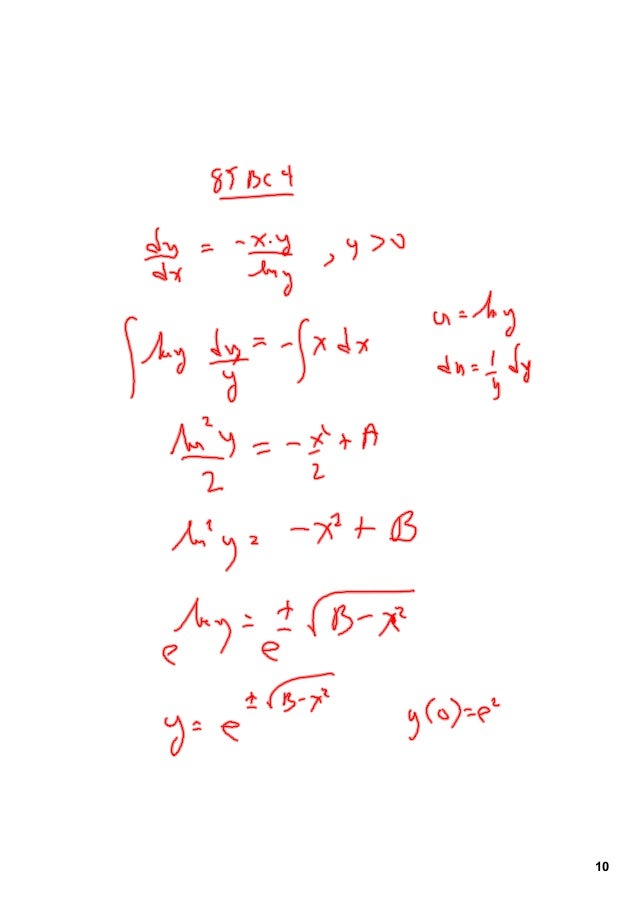 85 BC 4
dy/dx = -x·y/ln y , y > 0
∫ ln y dy/y = -∫ x dx
u = ln y
du = 1/y dy
ln² y/2 = -x²/2 + A
ln² y = -x² + B
e^ln y = e^±√(B - x²)
y = e^±√(B - x²)
y(0) = e²
10